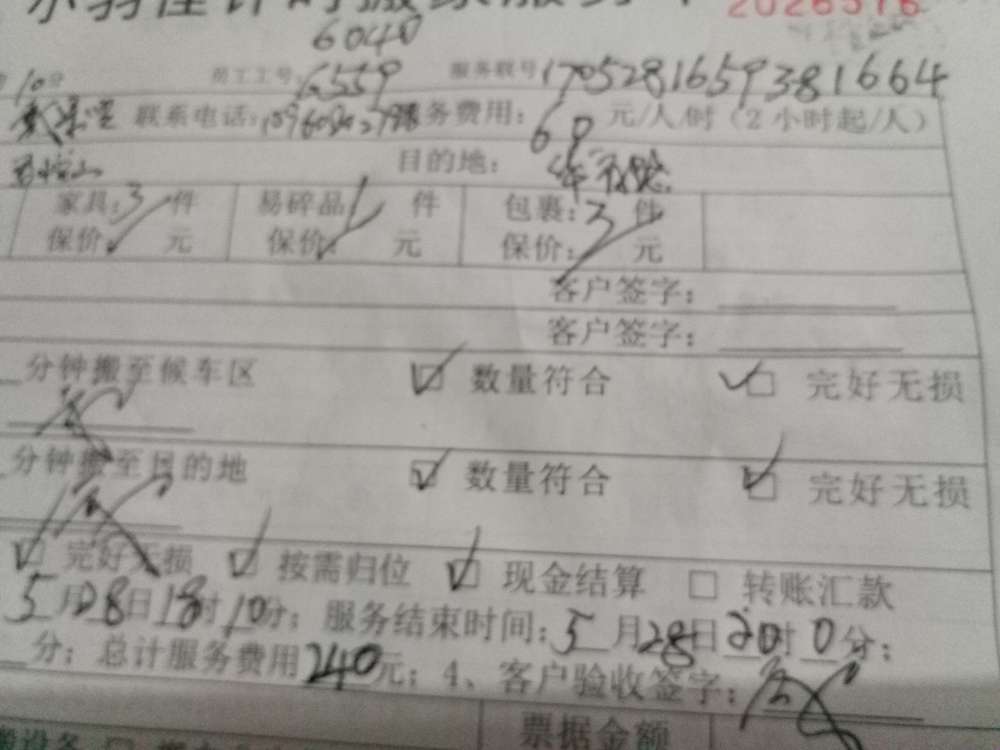 2026516
6040
员工工号: 6559 服务联号 170528165938 1664
联系电话: 务费用: 60 元/人/时（2小时起/人）
目的地:
家具: 3 件 易碎品 1 件 包裹: 3 件
保价: 元 保价: 元 保价: 元
客户签字:
客户签字:
分钟搬至候车区 ☑ 数量符合 ☑ 完好无损
分钟搬至目的地 ☑ 数量符合 ☑ 完好无损
☑ 完好无损 ☑ 按需归位 ☑ 现金结算 □ 转账汇款
5月28日18时10分; 服务结束时间: 5月28日20时0分;
分; 总计服务费用240元; 4、客户验收签字:
票据金额